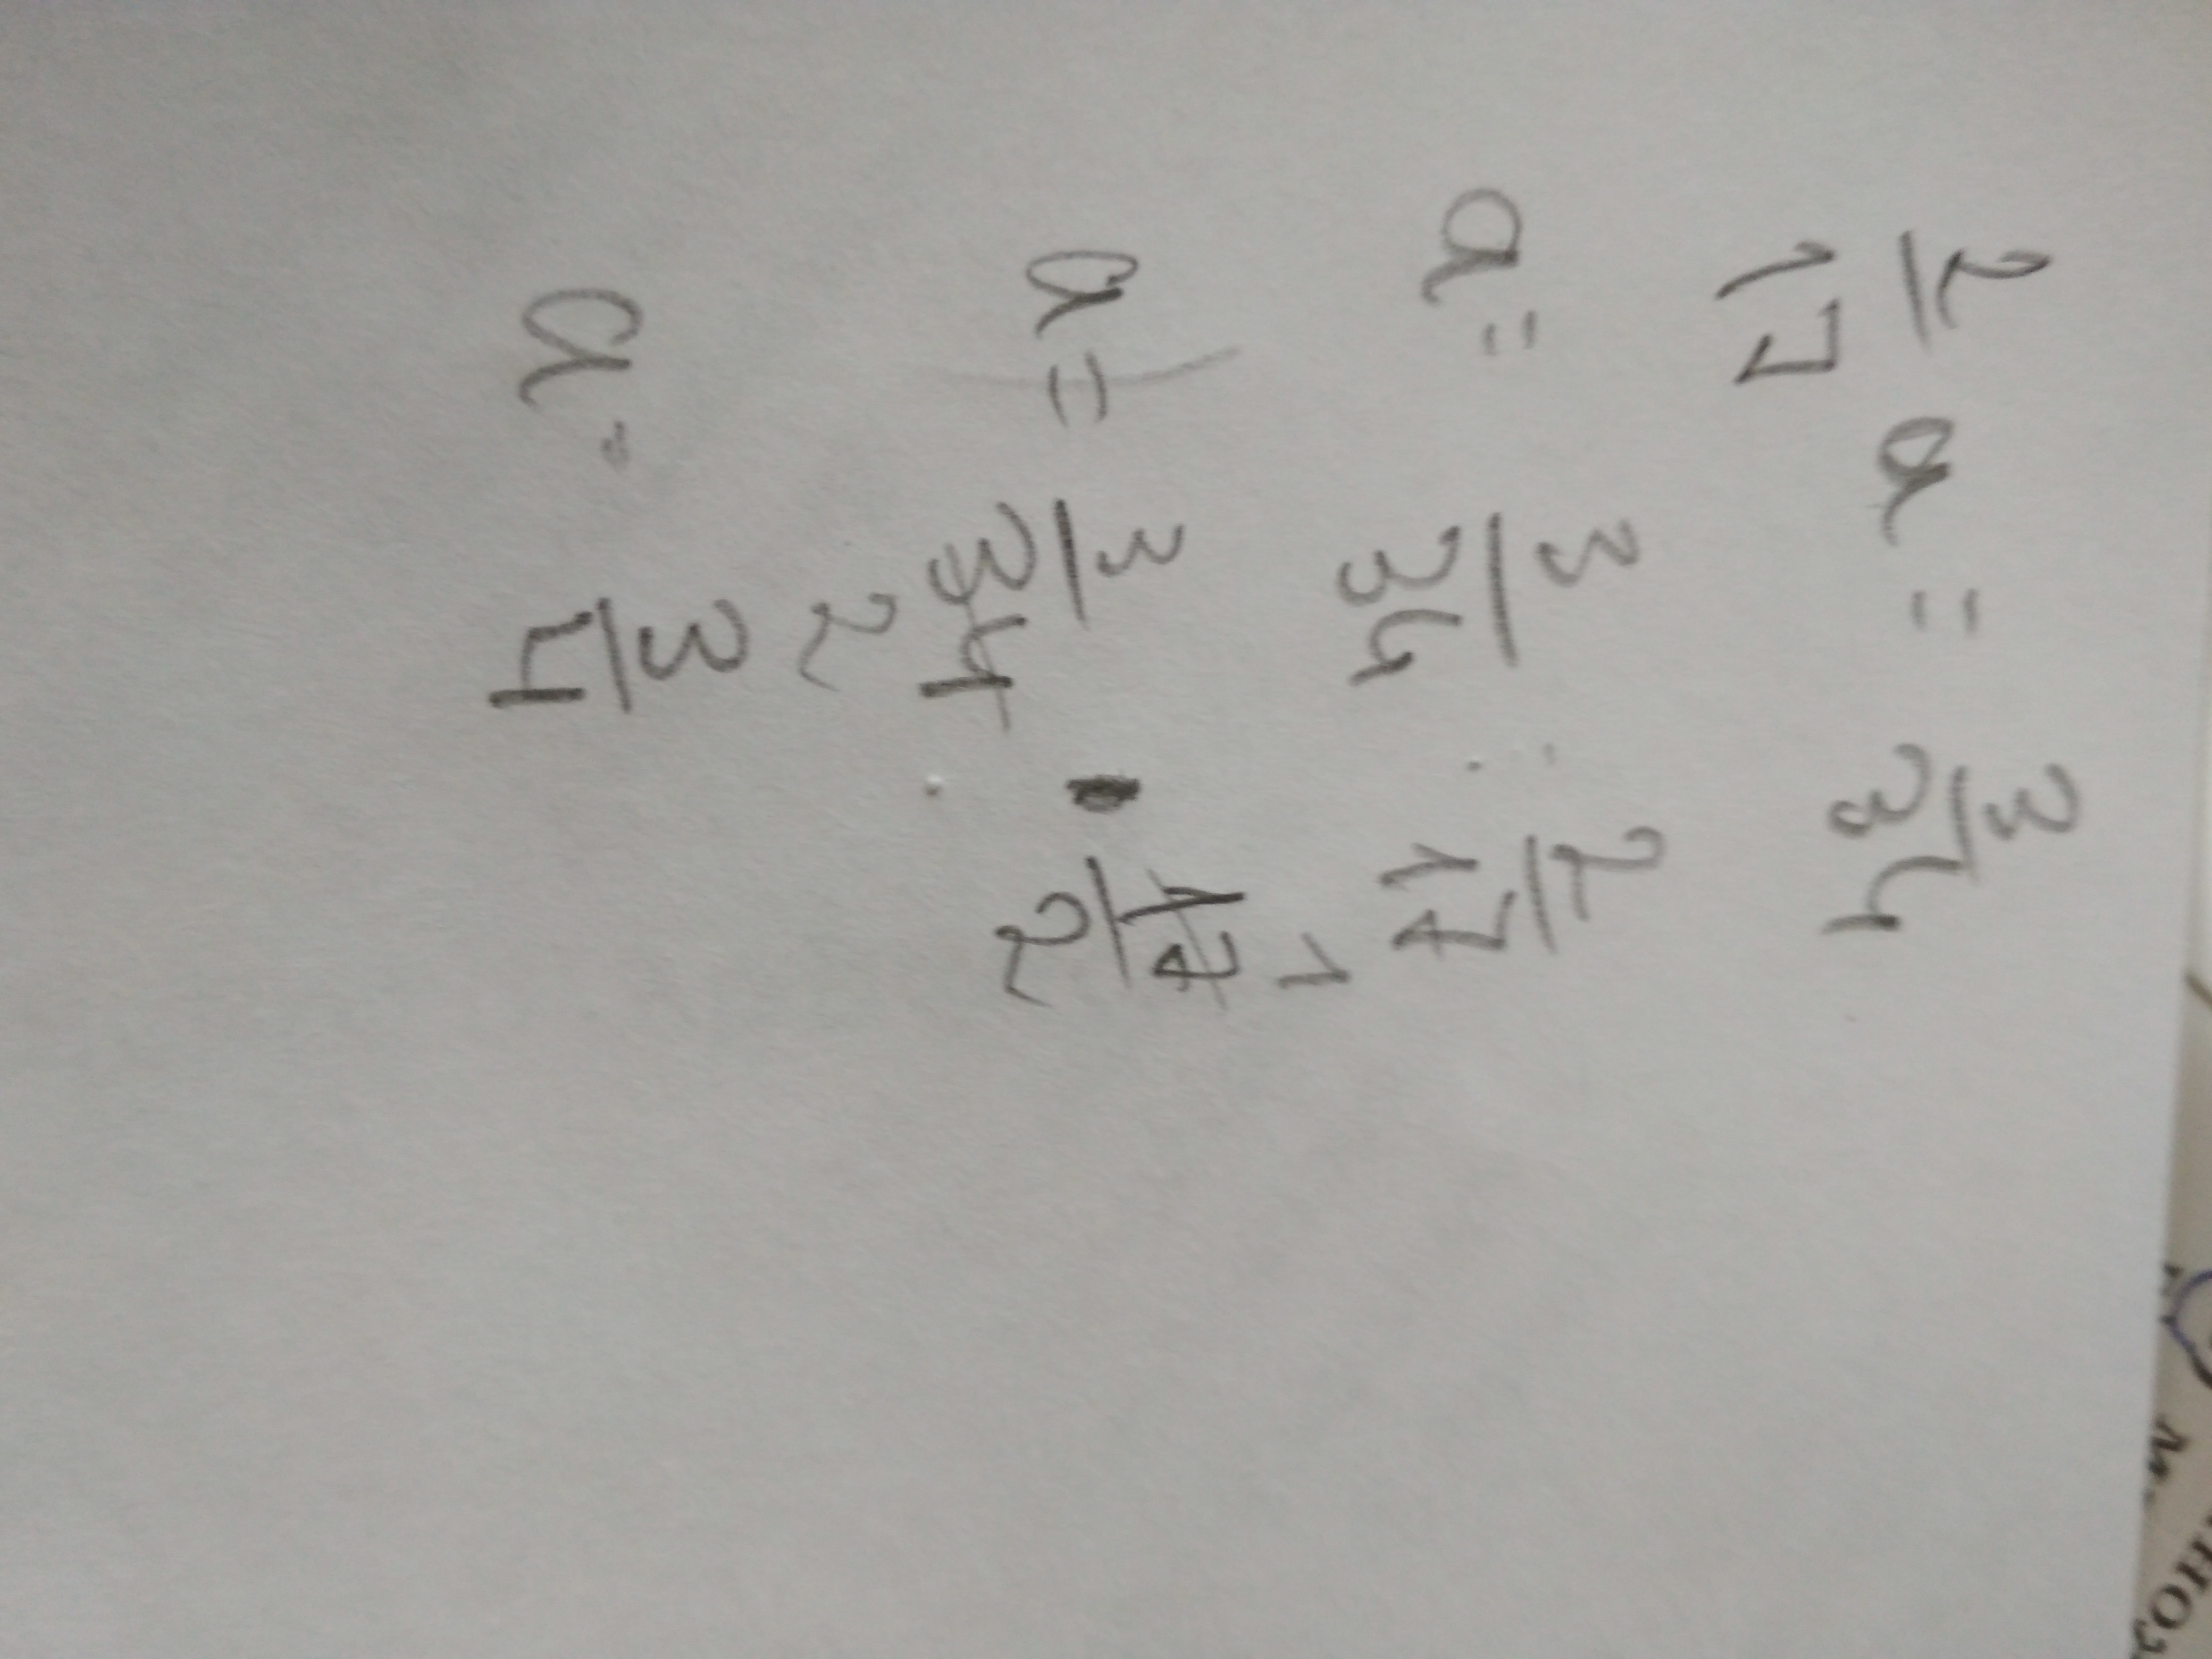 2/17 a = 3/34
a = 3/34 : 2/17
a = 3/34 2 · 17 1/2
a = 3/4